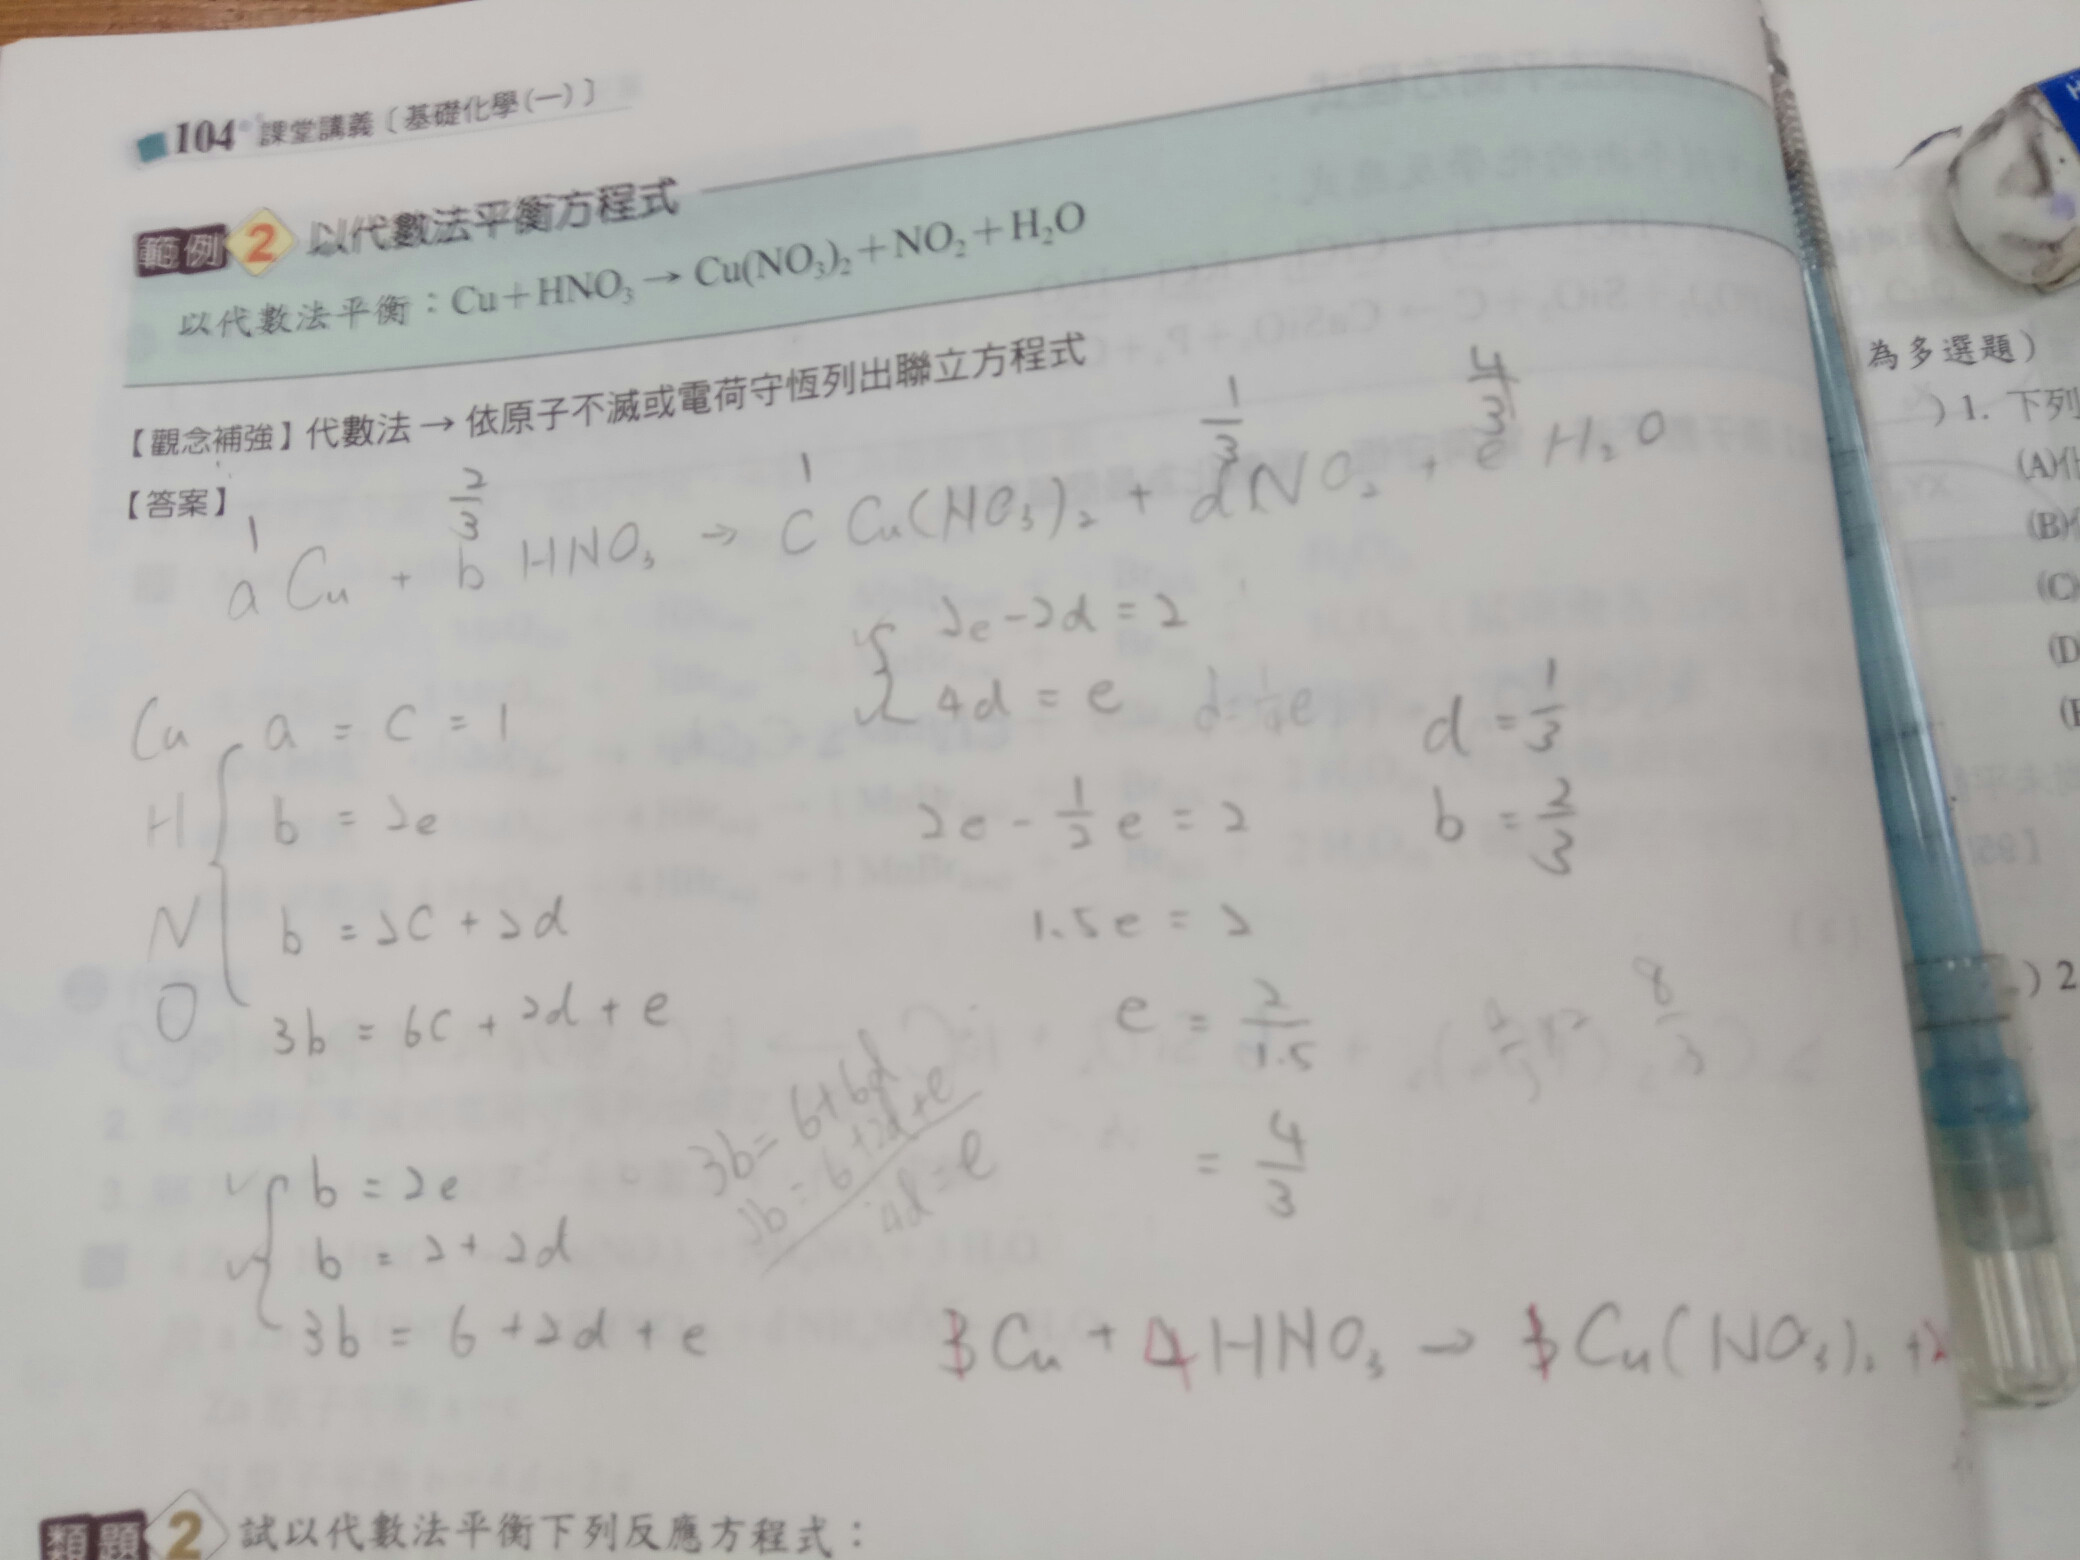 104 課堂講義〔基礎化學(一)〕
範例 2 以代數法平衡方程式
以代數法平衡：Cu+HNO₃→Cu(NO₃)₂+NO₂+H₂O
【觀念補強】代數法→依原子不滅或電荷守恆列出聯立方程式
【答案】
1 2/3 1 1/3 4/3
a Cu + b HNO₃ → C Cu(NO₃)₂ + d NO₂ + e H₂O
2e-2d=2
4d=e d=1/4e
Cu a=C=1
H b=2e
N b=2C+2d
O 3b=6C+2d+e
2e-1/2e=2
1.5e=2
e=2/1.5
=4/3
d=1/3
b=2/3
8/3
b=2e
b=2+2d
3b=6+2d+e
3b=6+6d
3b=6+2d+e
4d=e
Cu+4HNO₃→Cu(NO₃)₂+2
類題 2 試以代數法平衡下列反應方程式：
為多選題）
)1. 下列
(A)
(B)
(C)
(D)
)2